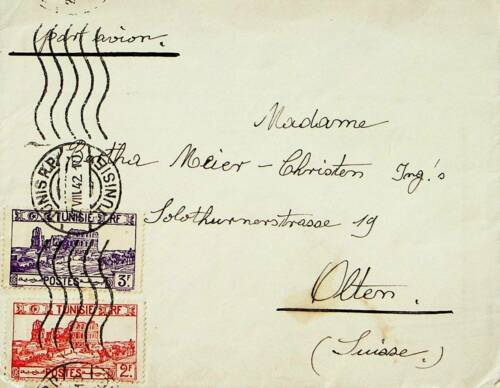 par avion.
Madame
Bertha Meier-Christen Ing.'s
Solothurnerstrasse 19
Olten.
(Suisse.)
TUNIS R.P. TUNIS
VIII 42
TUNISIE RF
POSTES 3F
TUNISIE RF
POSTES 2F.